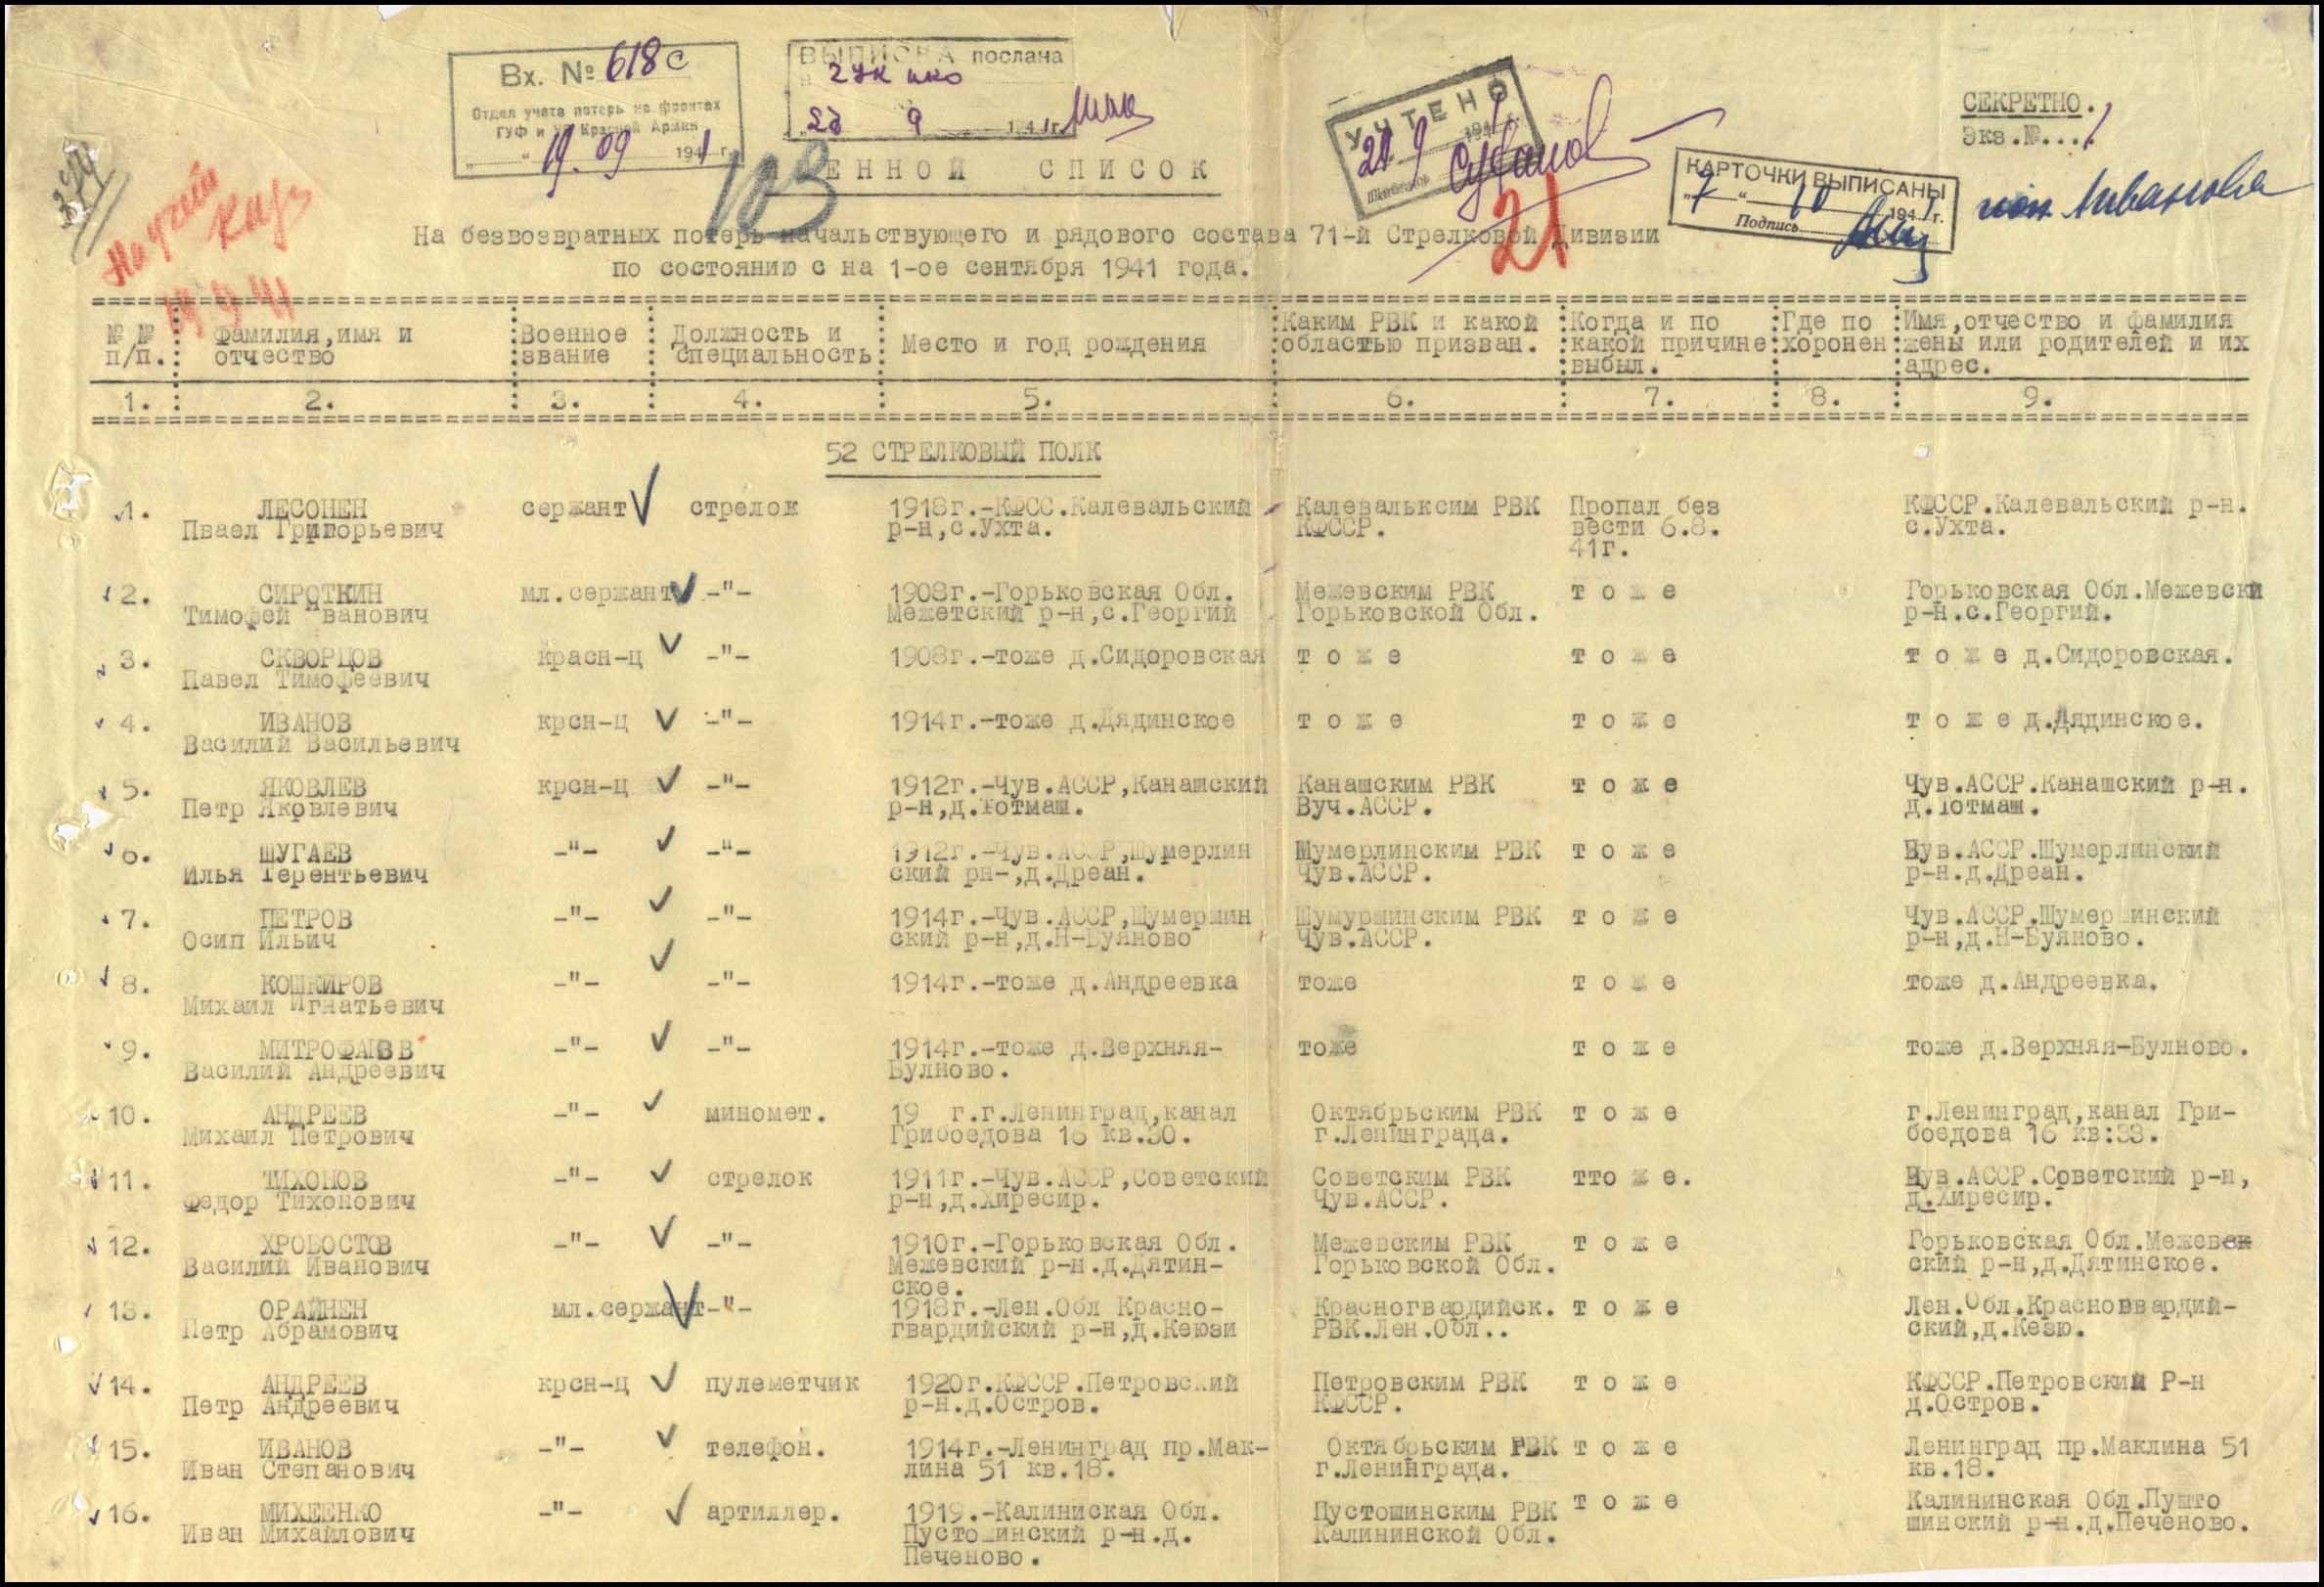 Вх. № 618с
Отдел учета потерь на фронтах
ГУФ и УВ Красной Армии
„ “ 19.09 1941 г.
ВЫПИСКА послана
28 9 1941г.
УЧТЕНО
КАРТОЧКИ ВЫПИСАНЫ
„7“ 10 1941 г.
Подпись
СЕКРЕТНО.
Экз.№...1
103
21
19.9.41
ЕННОЙ СПИСОК
На безвозвратных потерь начальствующего и рядового состава 71-й Стрелковой Дивизии
по состоянию с на 1-ое сентября 1941 года.
№ № п/п. : Фамилия,имя и отчество : Военное звание : Должность и специальность : Место и год рождения : Каким РВК и какой областью призван. : Когда и по какой причине выбыл. : Где по хоронен : Имя,отчество и фамилия жены или родителей и их адрес.
1. : 2. : 3. : 4. : 5. : 6. : 7. : 8. : 9.
52 СТРЕЛКОВЫЙ ПОЛК
1. ЛЕСОНЕН сержант стрелок 1918г.-КФСС.Калевальский Калевальксим РВК Пропал без КФССР.Калевальский р-н.
Пваел Григорьевич р-н,с.Ухта. КФССР. вести 6.8. с.Ухта.
41г.
2. СИРОТКИН мл.сержант -"- 1908г.-Горьковская Обл. Межевским РВК т о ж е Горьковская Обл.Межевски
Тимофей Иванович Межетский р-н,с.Георгий Горьковской Обл. р-н.с.Георгий.
3. СКВОРЦОВ красн-ц -"- 1908г.-тоже д.Сидоровская т о ж е т о ж е т о ж е д.Сидоровская.
Павел Тимофеевич
4. ИВАНОВ крсн-ц -"- 1914г.-тоже д.Дядинское т о ж е т о ж е т о ж е д.Дядинское.
Василий Васильевич
5. ЯКОВЛЕВ крсн-ц -"- 1912г.-Чув.АССР,Канашский Канашским РВК т о ж е Чув.АССР.Канашский р-н.
Петр Яковлевич р-н,д.Тотмаш. Вуч.АССР. д.Тотмаш.
6. ШУГАЕВ -"- -"- 1912г.-Чув.АССР,Шумерлин Шумерлинским РВК т о ж е Чув.АССР.Шумерлинский
Илья Терентьевич ский рн-,д.Дреан. Чув.АССР. р-н.д.Дреан.
7. ПЕТРОВ -"- -"- 1914г.-Чув.АССР,Шумершин Шумуршинским РВК т о ж е Чув.АССР.Шумершинский
Осип Ильич ский р-н,д.Н-Буяново Чув.АССР. р-н,д.Н-Буяново.
8. КОШКИРОВ -"- -"- 1914г.-тоже д.Андреевка тоже т о ж е тоже д.Андреевка.
Михаил Игнатьевич
9. МИТРОФАНОВ -"- -"- 1914г.-тоже д.Верхняя- тоже т о ж е тоже д.Верхняя-Булново.
Василий Андреевич Булново.
10. АНДРЕЕВ -"- миномет. 19 г.г.Ленинград,канал Октябрьским РВК т о ж е г.Ленинград,канал Гри-
Михаил Петрович Грибоедова 16 кв.30. г.Ленинграда. боедова 16 кв:33.
11. ТИХОНОВ -"- стрелок 1911г.-Чув.АССР,Советский Советским РВК тто ж е. Чув.АССР.Советский р-н,
Федор Тихонович р-н,д.Хиресир. Чув.АССР. д.Хиресир.
12. ХРОВОСТОВ -"- -"- 1910г.-Горьковская Обл. Межевским РВК т о ж е Горьковская Обл.Межевск
Василий Иванович Межевский р-н.д.Дятин- Горьковской Обл. ский р-н,д.Дятинское.
ское.
13. ОРАЙНЕН мл.сержант -"- 1918г.-Лен.Обл Красно- Красногвардийск. т о ж е Лен.Обл.Красновардий-
Петр Абрамович гвардийский р-н,д.Кеюзи РВК.Лен.Обл.. ский,д.Кезю.
14. АНДРЕЕВ крсн-ц пулеметчик 1920г.КФССР.Петровский Петровским РВК т о ж е КФССР.Петровский Р-н
Петр Андреевич р-н.д.Остров. КФССР. д.Остров.
15. ИВАНОВ -"- телефон. 1914г.-Ленинград пр.Мак- Октябрьским РВК т о ж е Ленинград пр.Маклина 51
Иван Степанович лина 51 кв.18. г.Ленинграда. кв.18.
16. МИХЕЕНКО -"- артиллер. 1919.-Калиниская Обл. Пустошинским РВК т о ж е Калининская Обл.Пушто
Иван Михайлович Пустошинский р-н.д. Калининской Обл. шинский р-н.д.Печеново.
Печеново.